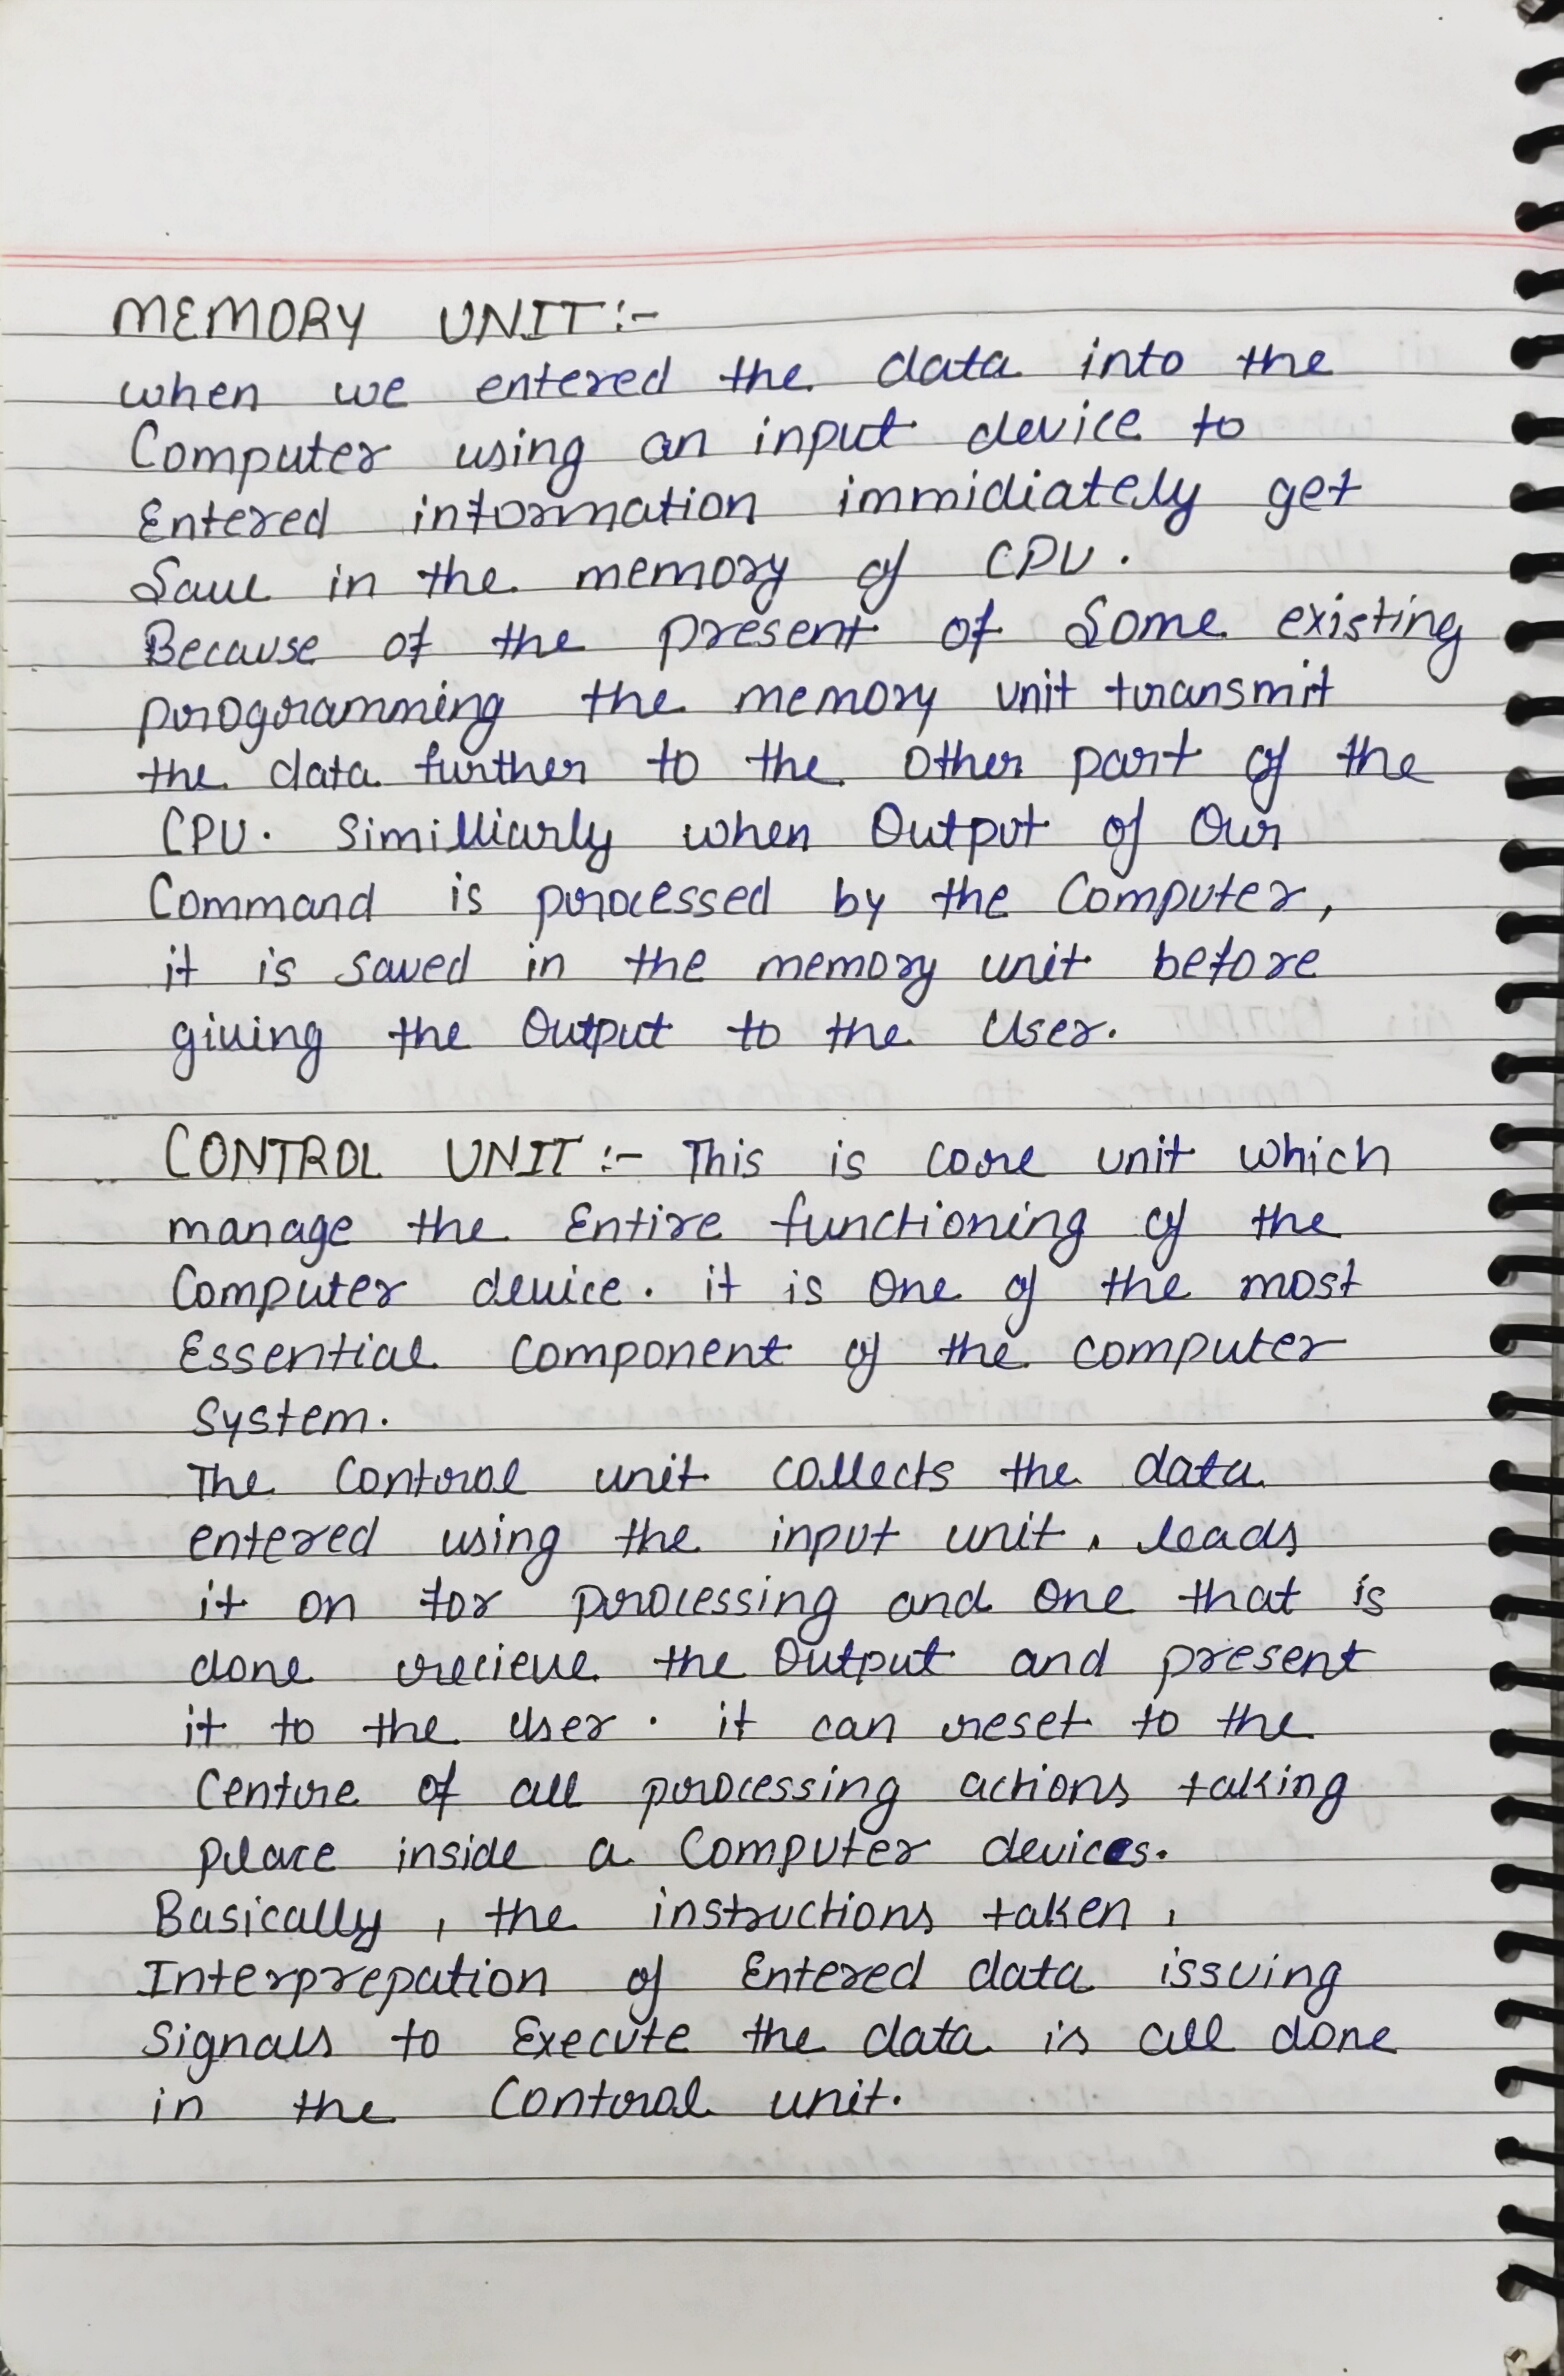 MEMORY UNIT:-
when we entered the data into the
Computer using an input device to
Entered information immidiately get
Save in the memory of CPU.
Because of the present of Some existing
programming the memory unit transmit
the data further to the other part of the
CPU. Similliarly when Output of Our
Command is processed by the Computer,
it is saved in the memory unit before
giving the Output to the User.
CONTROL UNIT :- This is core unit which
manage the Entire functioning of the
Computer device. it is One of the most
Essential Component of the computer
System.
The Control unit collects the data
entered using the input unit, leads
it on for processing and one that is
done recieve the Output and present
it to the User. it can reset to the
Centre of all processing actions taking
place inside a Computer devices.
Basically, the instructions taken,
Interprepation of Entered data issuing
Signals to Execute the data is all done
in the Control unit.